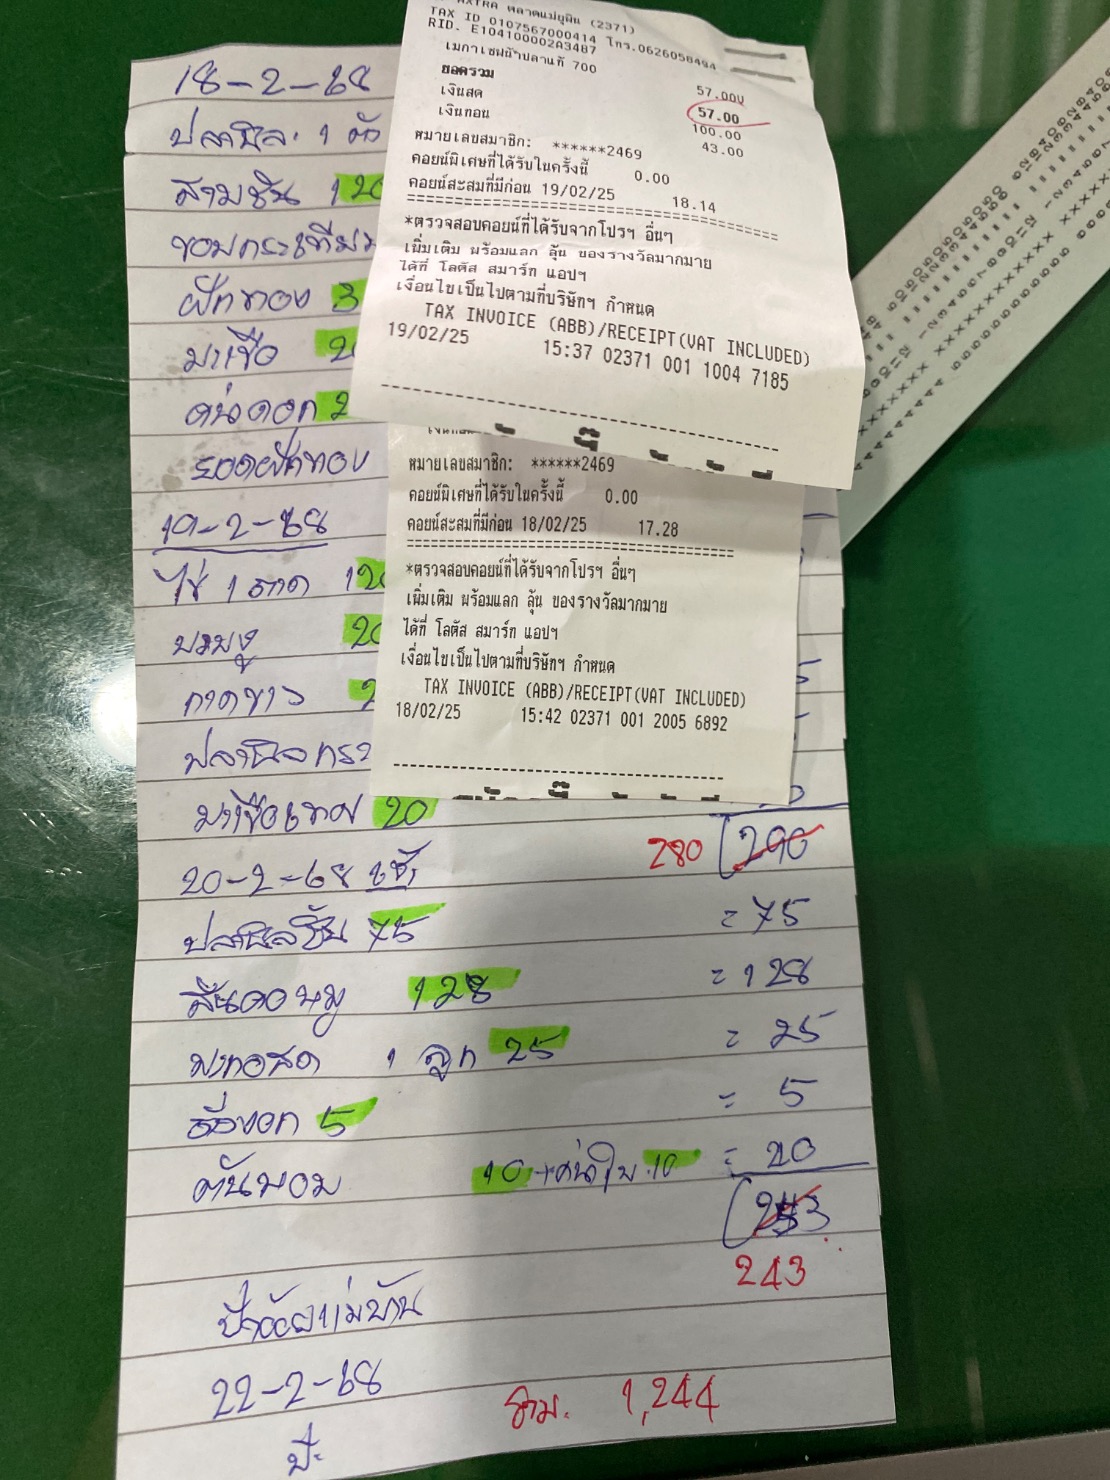 AXTRA ตลาดแม่ยูมิน (2371)
TAX ID 0107567000414 โทร.0626058494
RID. E104100002A3487
เมกาเชฟน้ำปลาแท้ 700 57.00V
ยอดรวม 57.00
เงินสด 100.00
เงินทอน 43.00
หมายเลขสมาชิก: ******2469
คอยน์พิเศษที่ได้รับในครั้งนี้ 0.00
คอยน์สะสมที่มีก่อน 19/02/25 18.14
*ตรวจสอบคอยน์ที่ได้รับจากโปรฯ อื่นๆ
เพิ่มเติม พร้อมแลก ลุ้น ของรางวัลมากมาย
ได้ที่ โลตัส สมาร์ท แอปฯ
เงื่อนไขเป็นไปตามที่บริษัทฯ กำหนด
TAX INVOICE (ABB)/RECEIPT(VAT INCLUDED)
19/02/25 15:37 02371 001 1004 7185
หมายเลขสมาชิก: ******2469
คอยน์พิเศษที่ได้รับในครั้งนี้ 0.00
คอยน์สะสมที่มีก่อน 18/02/25 17.28
*ตรวจสอบคอยน์ที่ได้รับจากโปรฯ อื่นๆ
เพิ่มเติม พร้อมแลก ลุ้น ของรางวัลมากมาย
ได้ที่ โลตัส สมาร์ท แอปฯ
เงื่อนไขเป็นไปตามที่บริษัทฯ กำหนด
TAX INVOICE (ABB)/RECEIPT(VAT INCLUDED)
18/02/25 15:42 02371 001 2005 6892
18-2-68
ปลานิล 1 ตัว
สามชั้น 120
หอมกระเทียม
ฟักทอง 3
มะเขือ 20
ยอดฟักทอง
19-2-68
ไข่ 1 ถาด 120
บวบงู 20
กาดขาว 2
ปลานิล
มะเขือเทศ 20
280 290
20-2-68 เช้า
ปลานิลชิ้น 75 = 75
สันคอหมู 128 = 128
มะกอสด 1 ลูก 25 = 25
ถั่วงอก 5 = 5
ต้นหอม 10 + คะน้าใบ 10 = 20
243
ป้าอ้อยแม่บ้าน
22-2-68
รวม. 1,244